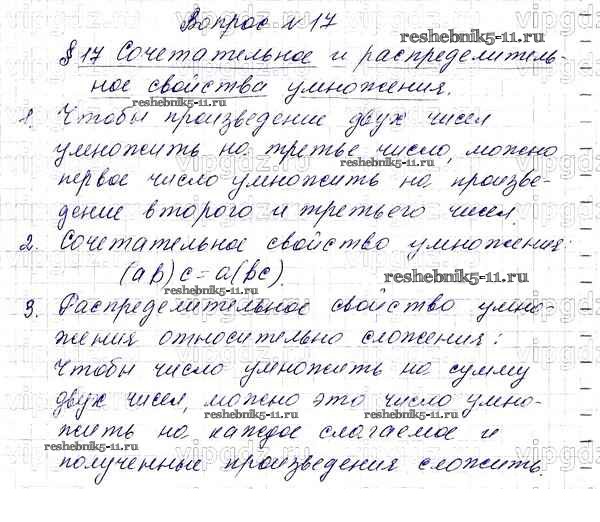 Вопрос №17
§ 17 Сочетательное и распределитель-
ное свойства умножения.
1. Чтобы произведение двух чисел
умножить на третье число, можно
первое число умножить на произве-
дение второго и третьего чисел.
2. Сочетательное свойство умножения:
(ab)c=a(bc).
3. Распределительное свойство умно-
жения относительно сложения:
Чтобы число умножить на сумму
двух чисел, можно это число умно-
жить на каждое слагаемое и
полученные произведения сложить.
reshebnik5-11.ru
reshebnik5-11.ru
reshebnik5-11.ru
reshebnik5-11.ru
reshebnik5-11.ru
reshebnik5-11.ru
reshebnik5-11.ru
reshebnik5-11.ru
reshebnik5-11.ru